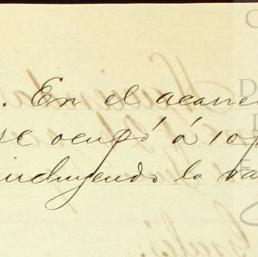 . En el acarre
se ocupó á 10
incluyendo la va